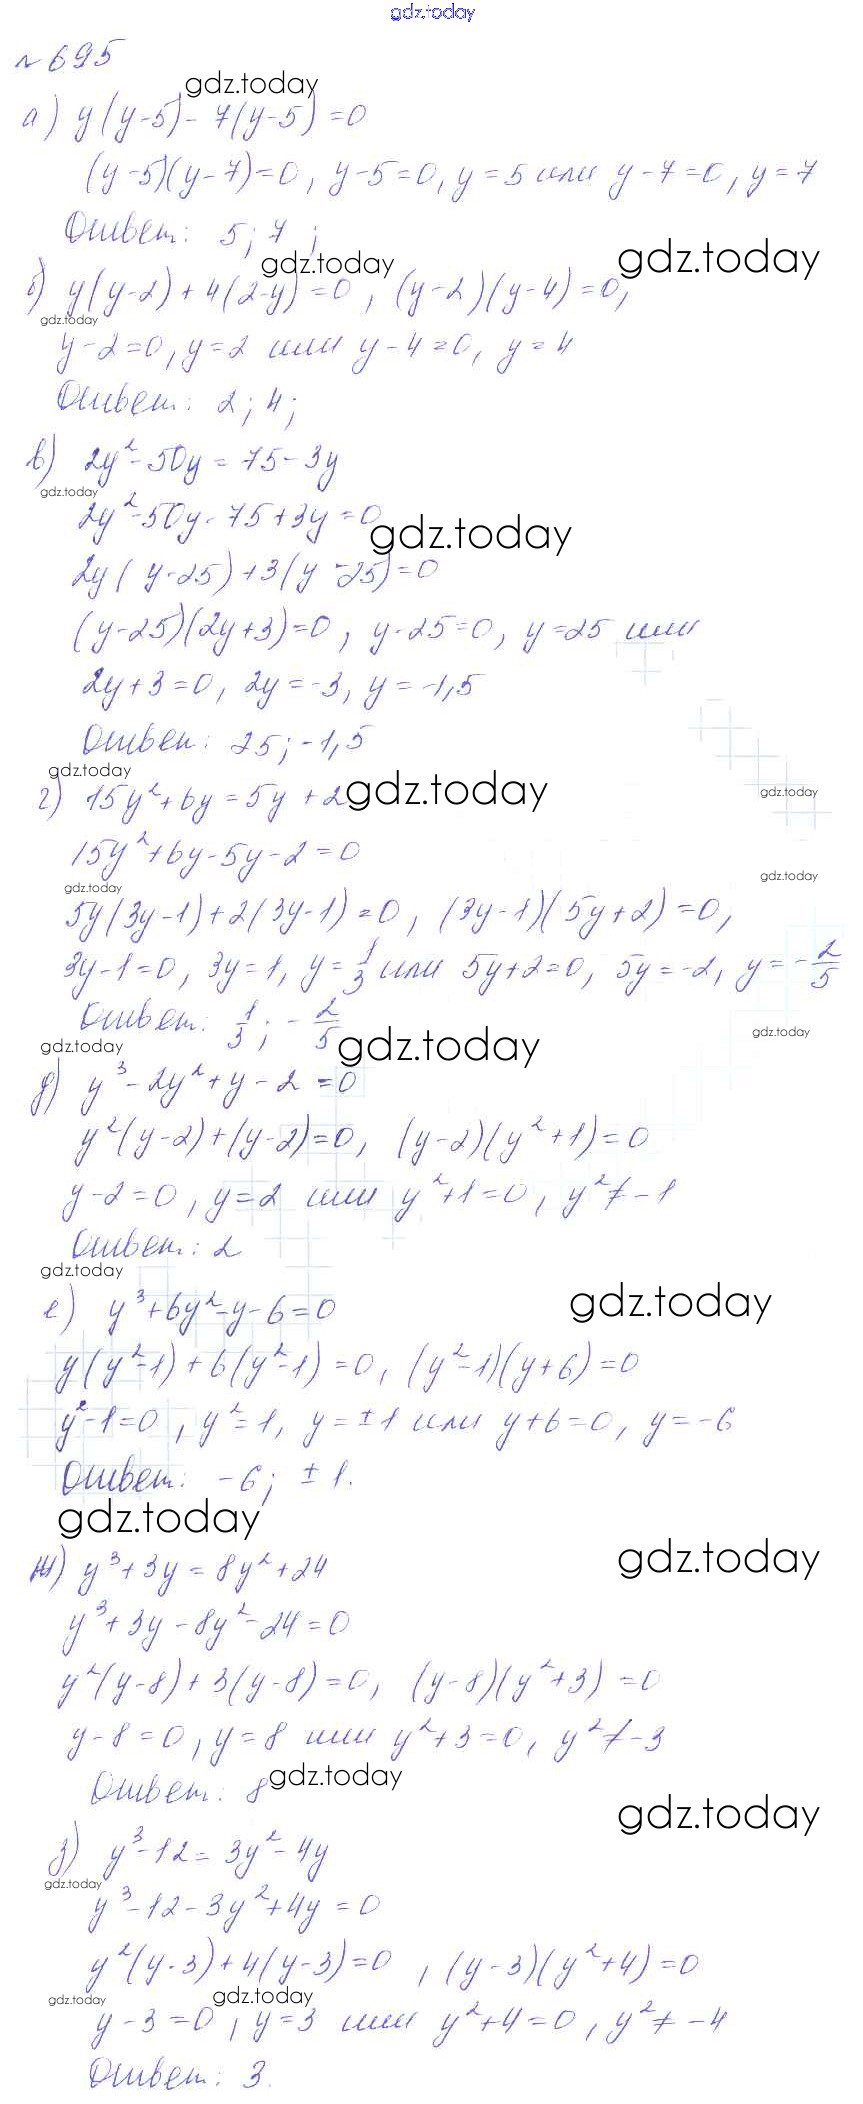 gdz.today
№ 695
gdz.today
а) y(y-5) - 7(y-5) = 0
(y-5)(y-7)=0, y-5=0, y=5 или y-7=0, y=7
Ответ: 5; 7;
gdz.today gdz.today
б) y(y-2) + 4(2-y) = 0, (y-2)(y-4) = 0,
gdz.today
y-2=0, y=2 или y-4=0, y=4
Ответ: 2; 4;
в) 2y²-50y = 75-3y
gdz.today
2y²-50y-75+3y=0
gdz.today
2y(y-25)+3(y-25)=0
(y-25)(2y+3)=0, y-25=0, y=25 или
2y+3=0, 2y=-3, y=-1,5
Ответ: 25; -1,5
gdz.today gdz.today gdz.today
г) 15y²+6y=5y+2
15y²+6y-5y-2=0
gdz.today gdz.today
5y(3y-1)+2(3y-1)=0, (3y-1)(5y+2)=0,
3y-1=0, 3y=1, y=1/3 или 5y+2=0, 5y=-2, y=-2/5
Ответ: 1/3; -2/5
gdz.today gdz.today gdz.today
д) y³-2y²+y-2=0
y²(y-2)+(y-2)=0, (y-2)(y²+1)=0
y-2=0, y=2 или y²+1=0, y²≠-1
Ответ: 2
gdz.today gdz.today
е) y³+6y²-y-6=0
y(y²-1)+6(y²-1)=0, (y²-1)(y+6)=0
y²-1=0, y²=1, y=±1 или y+6=0, y=-6
Ответ: -6; ±1.
gdz.today gdz.today
ж) y³+3y=8y²+24
y³+3y-8y²-24=0
y²(y-8)+3(y-8)=0, (y-8)(y²+3)=0
y-8=0, y=8 или y²+3=0, y²≠-3
Ответ: 8
gdz.today gdz.today
з) y³-12=3y²-4y
gdz.today
y³-12-3y²+4y=0
y²(y-3)+4(y-3)=0, (y-3)(y²+4)=0
gdz.today gdz.today
y-3=0, y=3 или y²+4=0, y²≠-4
Ответ: 3.